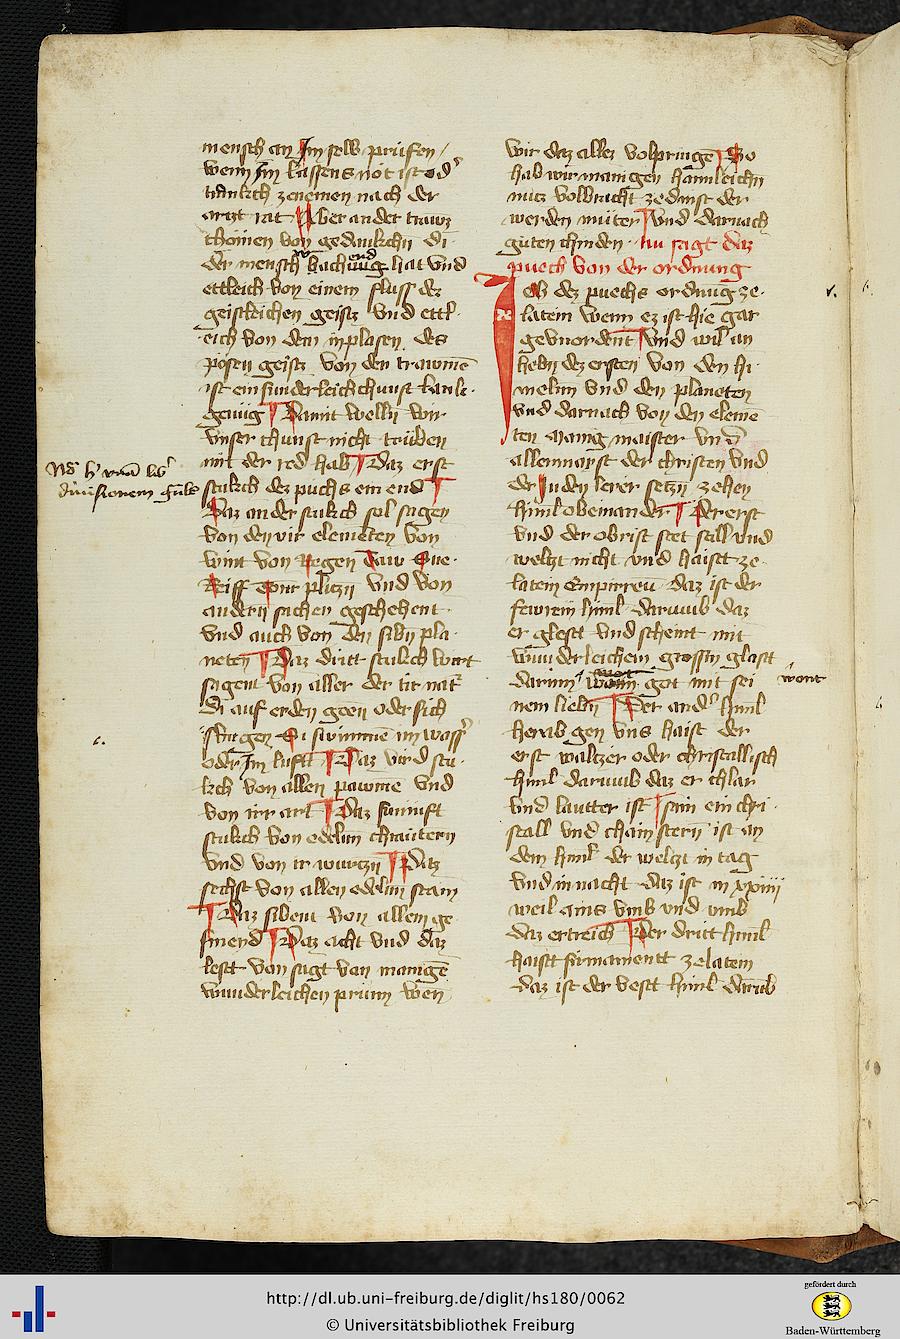 mensch an Im selb prüfen /
wenn Im lassens not ist od'
trankch zenemen nach der
arczt rat Aber ander traum
chömen von gedankchn di
der mensch wachund hat vnd
ettleich von einem fluss dez
geistleichen geistz vnd ettl
eich von dem inplasen des
pösen geistz von den trawmē
ist ein sunderleich chunst lank
genüg Damit welln wir
vnser chunst nicht trüben
mit der red hab Daz erst
stukch dez püchs ein end
Daz ander stukch sol sagen
von den vir elementen von
wint von Regen Taw Sne
Reiff Donr plitzn vnd von
andern sachen geschehent
vnd auch von den sibn pla
neten Daz dritt stukch wirt
sagent von aller der tir nat'
Di auf erden geen oder sich
Oder Im lufft Daz vird stu
kch von allen pawmē vnd
von irr art Daz fumft
stukch von edelm chrawtern
vnd von ir wurtzn Datz
sechst von allen edelm stain
Daz sibent von allem ge
smeyd Daz acht vnd daz
lestt von sagt von manigē
wunderleichen prunn wen
wir daz allez volpringē So
hab wir manigen hämleichn
nutz volbracht ze dinst der
werden müter vnd darnach
guten chinden · Nu sagt daz
puech von der ordnung
Ich dez puechs ordnüg ze
latein wenn ez ist hie gar
geuuordent vnd wil an
hebn dez ersten von den hi
meln vnd den planeten
vnd darnach von den eleme
ten Manig maister vnd
allermaist der christen vnd
der Juden lerer setzn zehen
himl obeinander Der erst
vnd der obrist stet still vnd
weltzt nicht vnd haistt ze
latein Empirreu daz ist der
fewrein himl darumb daz
er glestt vnd scheint mit
wunderleichem grossm glast
darinn got mit sei
wont
nem liebn Der and' himl
herab gen vns haist der
erst waltzer oder christallisch
himl darumb daz er chlar
vnd lautter ist sam ein chri
stall vnd chain stern ist an
dem himl der weltzt in tag
vnd in nacht daz ist in xxiiii
weil ains vmb vnd vmb
daz ertreich Der dritt himl
haistt firmamentt zelatein
daz ist der vestt himl darūb
http://dl.ub.uni-freiburg.de/diglit/hs180/0062
© Universitätsbibliothek Freiburg
gefördert durch
Baden-Württemberg